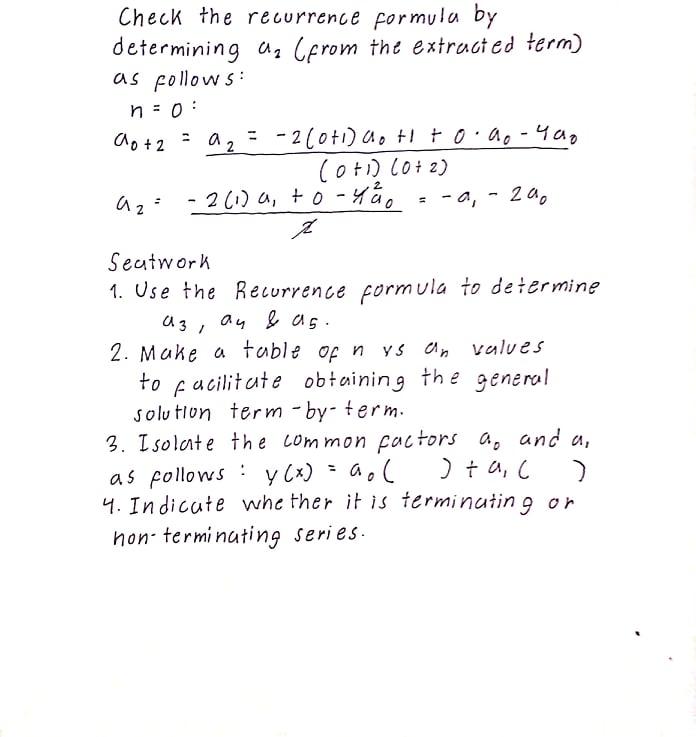 Check the recurrence formula by
determining a₂ (from the extracted term)
as follows:
n = 0 :
a₀₊₂ = a₂ = -2(0+1)a₀ +1 + 0 · a₀ - 4a₀
(0+1) (0+2)
a₂ = -2(1) a₁ + 0 - 4²a₀ = -a₁ - 2a₀
2
Seatwork
1. Use the Recurrence formula to determine
a₃ , a₄ & a₅.
2. Make a table of n vs aₙ values
to facilitate obtaining the general
solution term-by-term.
3. Isolate the common factors a₀ and a₁
as follows : y(x) = a₀( ) + a₁ ( )
4. Indicate whether it is terminating or
non-terminating series.